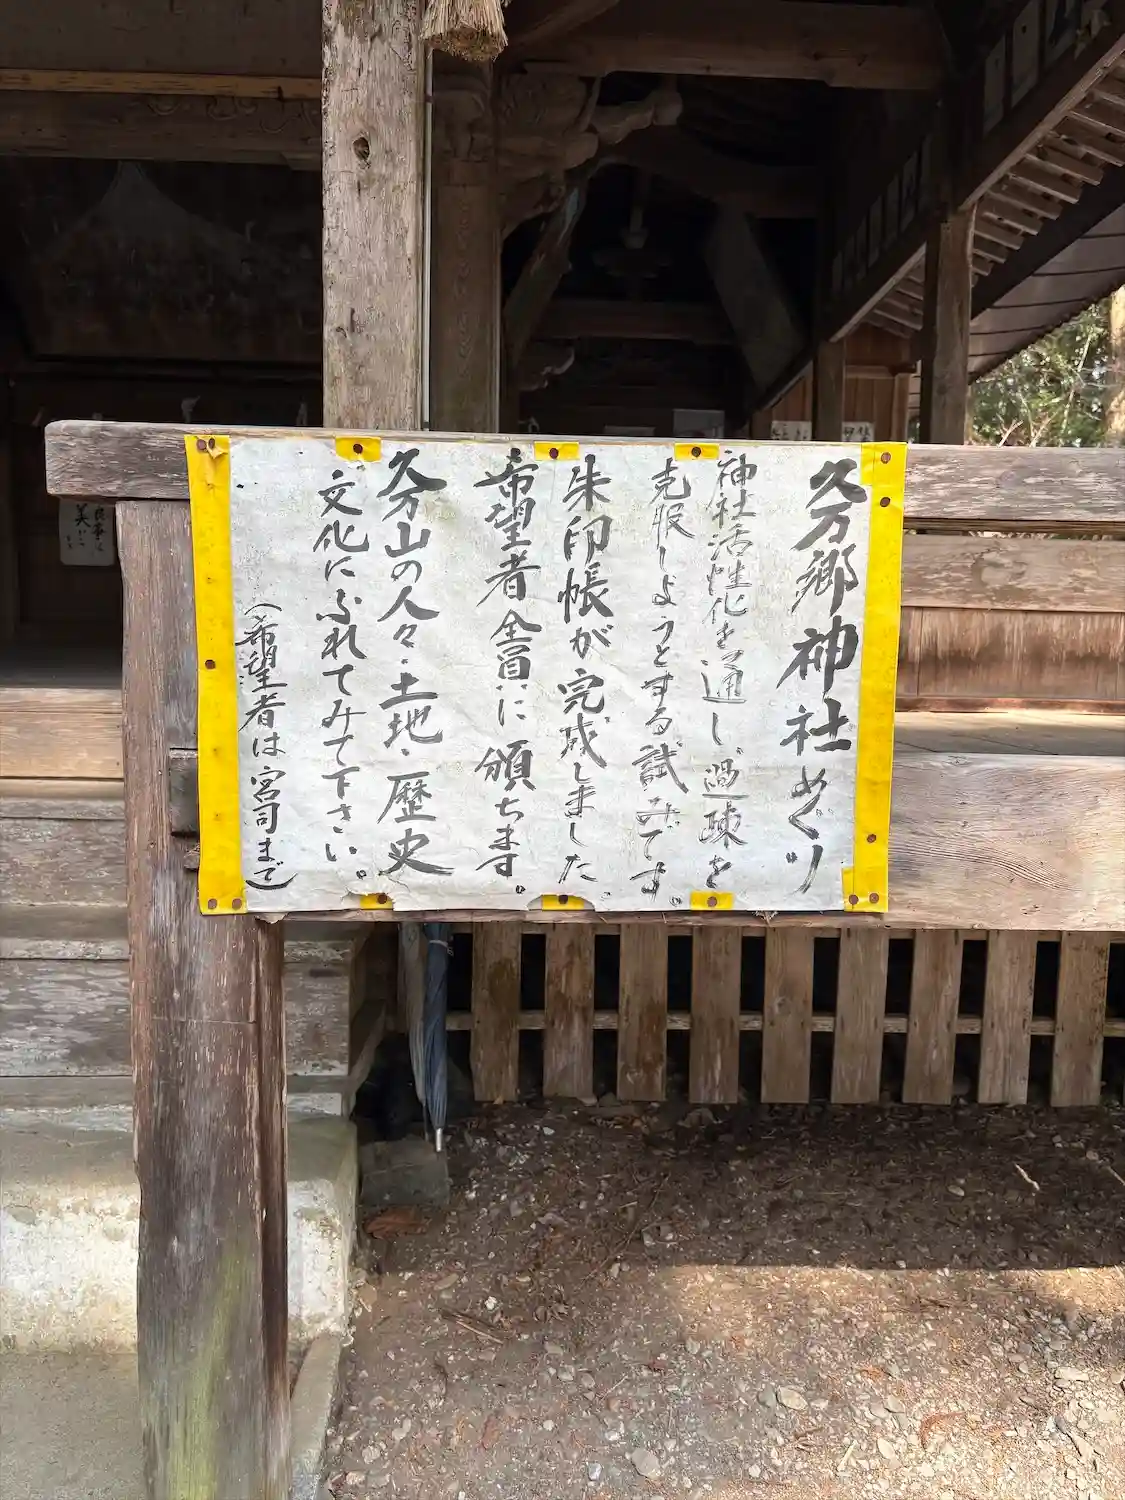 久万郷神社めぐり
神社活性化を通し過疎を
克服しようとする試みです。
朱印帳が完成しました。
希望者全員に頒ちます。
久万山の人々・土地・歴史
文化にふれてみて下さい。
(希望者は宮司まで)